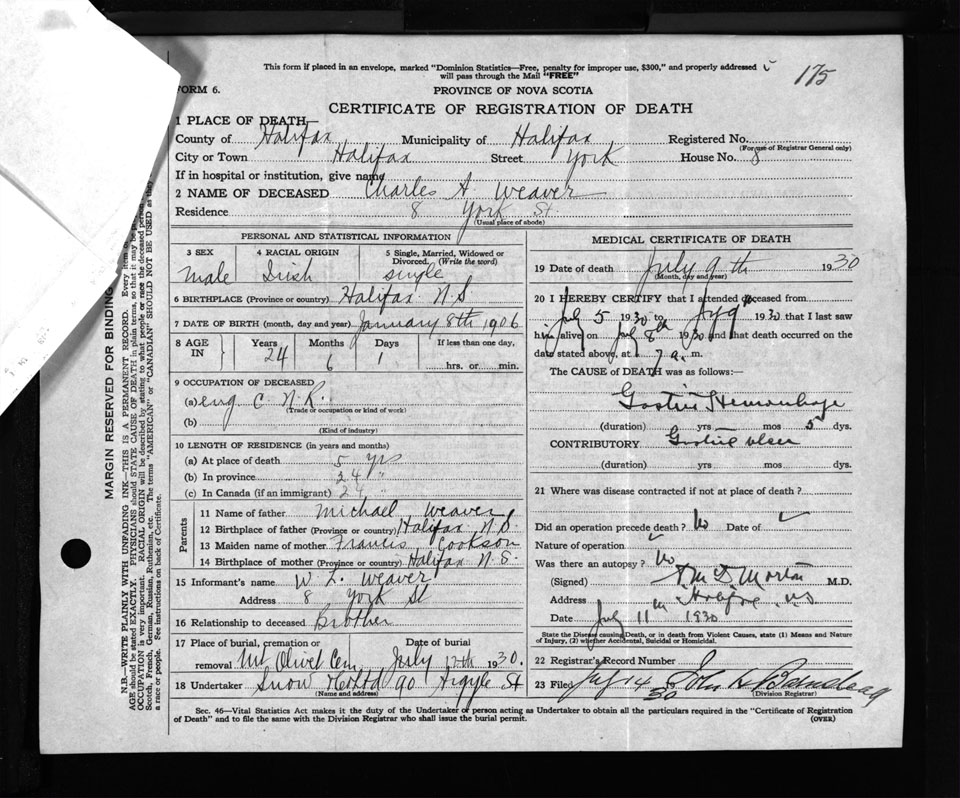 This form if placed in an envelope, marked "Dominion Statistics—Free, penalty for improper use, $300," and properly addressed
will pass through the Mail "FREE"
175
FORM 6.
PROVINCE OF NOVA SCOTIA
CERTIFICATE OF REGISTRATION OF DEATH
1 PLACE OF DEATH—
County of Halifax Municipality of Halifax Registered No.
(For use of Registrar General only)
City or Town Halifax Street York House No. 8
If in hospital or institution, give name
2 NAME OF DECEASED Charles A. Weaver
Residence 8 York St.
(Usual place of abode)
PERSONAL AND STATISTICAL INFORMATION
3 SEX 4 RACIAL ORIGIN 5 Single, Married, Widowed or Divorced. (Write the word)
Male Irish single
6 BIRTHPLACE (Province or country) Halifax N.S
7 DATE OF BIRTH (month, day and year) January 8th 1906
8 AGE IN Years Months Days If less than one day,
24 6 1 hrs. or min.
9 OCCUPATION OF DECEASED
(a) eng C.N.R.
(Trade or occupation or kind of work)
(b)
(Kind of industry)
10 LENGTH OF RESIDENCE (in years and months)
(a) At place of death 5 yrs
(b) In province 24 "
(c) In Canada (if an immigrant) 24 "
Parents
11 Name of father Michael Weaver
12 Birthplace of father (Province or country) Halifax N.S.
13 Maiden name of mother Francis Cookson
14 Birthplace of mother (Province or country) Halifax N.S.
15 Informant's name W. L. Weaver
Address 8 York St
16 Relationship to deceased Brother
17 Place of burial, cremation or Date of burial
removal Mt Olivet Cem July 12th 1930.
18 Undertaker Snow & Co Ltd 90 Argyle St
(Name and address)
MEDICAL CERTIFICATE OF DEATH
19 Date of death July 9th 1930
(Month, day and year)
20 I HEREBY CERTIFY that I attended deceased from
July 5 1930 to July 9 1930 that I last saw
him alive on July 8th 1930 and that death occurred on the
date stated above, at 7 a. m.
The CAUSE of DEATH was as follows:—
Gastric Hemorrhage
(duration) yrs mos 5 dys.
CONTRIBUTORY Gastric ulcer
(duration) yrs mos dys.
21 Where was disease contracted if not at place of death?
Did an operation precede death? No Date of
Nature of operation
Was there an autopsy? No
(Signed) Morton M.D.
Address Halifax N.S
Date July 11th 1930
State the Disease causing Death, or in death from Violent Causes, state (1) Means and Nature
of Injury, (2) whether Accidental, Suicidal or Homicidal.
22 Registrar's Record Number
23 Filed July 14 30 John
(Division Registrar)
Sec. 46—Vital Statistics Act makes it the duty of the Undertaker or person acting as Undertaker to obtain all the particulars required in the "Certificate of Registration
of Death" and to file the same with the Division Registrar who shall issue the burial permit. (OVER)
MARGIN RESERVED FOR BINDING
N.B.—WRITE PLAINLY WITH UNFADING INK—THIS IS A PERMANENT RECORD. Every item
AGE should be stated EXACTLY. PHYSICIANS should STATE CAUSE OF DEATH in plain terms, so that it may be
OCCUPATION is very important. RACIAL ORIGIN will be described by stating to what people or race the deceased person
Scotch, French, German, Russian, Ruthenian, etc. The terms "AMERICAN" or "CANADIAN" SHOULD NOT BE USED as they
a race or people. See instructions on back of Certificate.